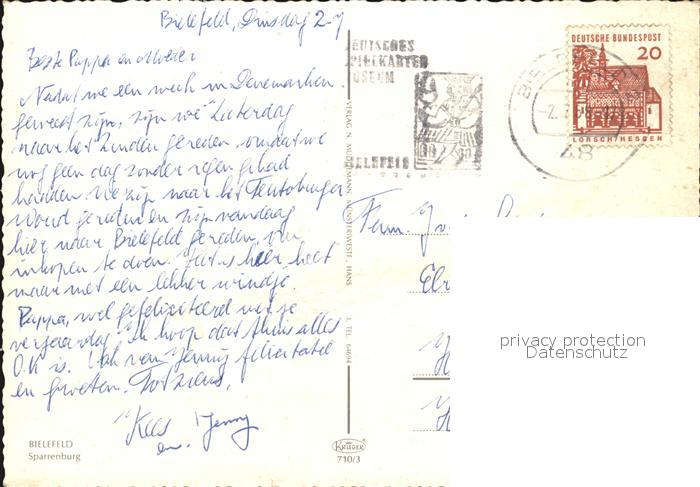 Bielefeld, Dinsdag 2-7
Beste Pappa en Moeder
Nadat we een week in Denemarken
geweest zijn, zijn we Zaterdag
naar het Zuiden gereden omdat we
nog geen dag zonder regen gehad
hadden. We zijn naar het Teutoburger
Woud gereden en zijn vandaag
hier naar Bielefeld gereden, om
inkopen te doen. Het is hier heet
maar met een lekker windje.
Pappa, wel gefeliciteerd met je
verjaardag. Ik hoop dat thuis alles
O.K is. Ook van Jenny felicitatie
en groeten. Tot ziens,
Kees
en Jenny
BIELEFELD
Sparrenburg
DEUTSCHES
SPIELKARTEN
MUSEUM
BIELEFELD
DEUTSCHE BUNDESPOST
20
LORSCH/HESSEN
48
Fam.
KRÜGER
710/3
privacy protection
Datenschutz